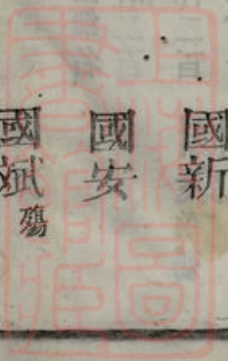 國新
國安
國斌殤